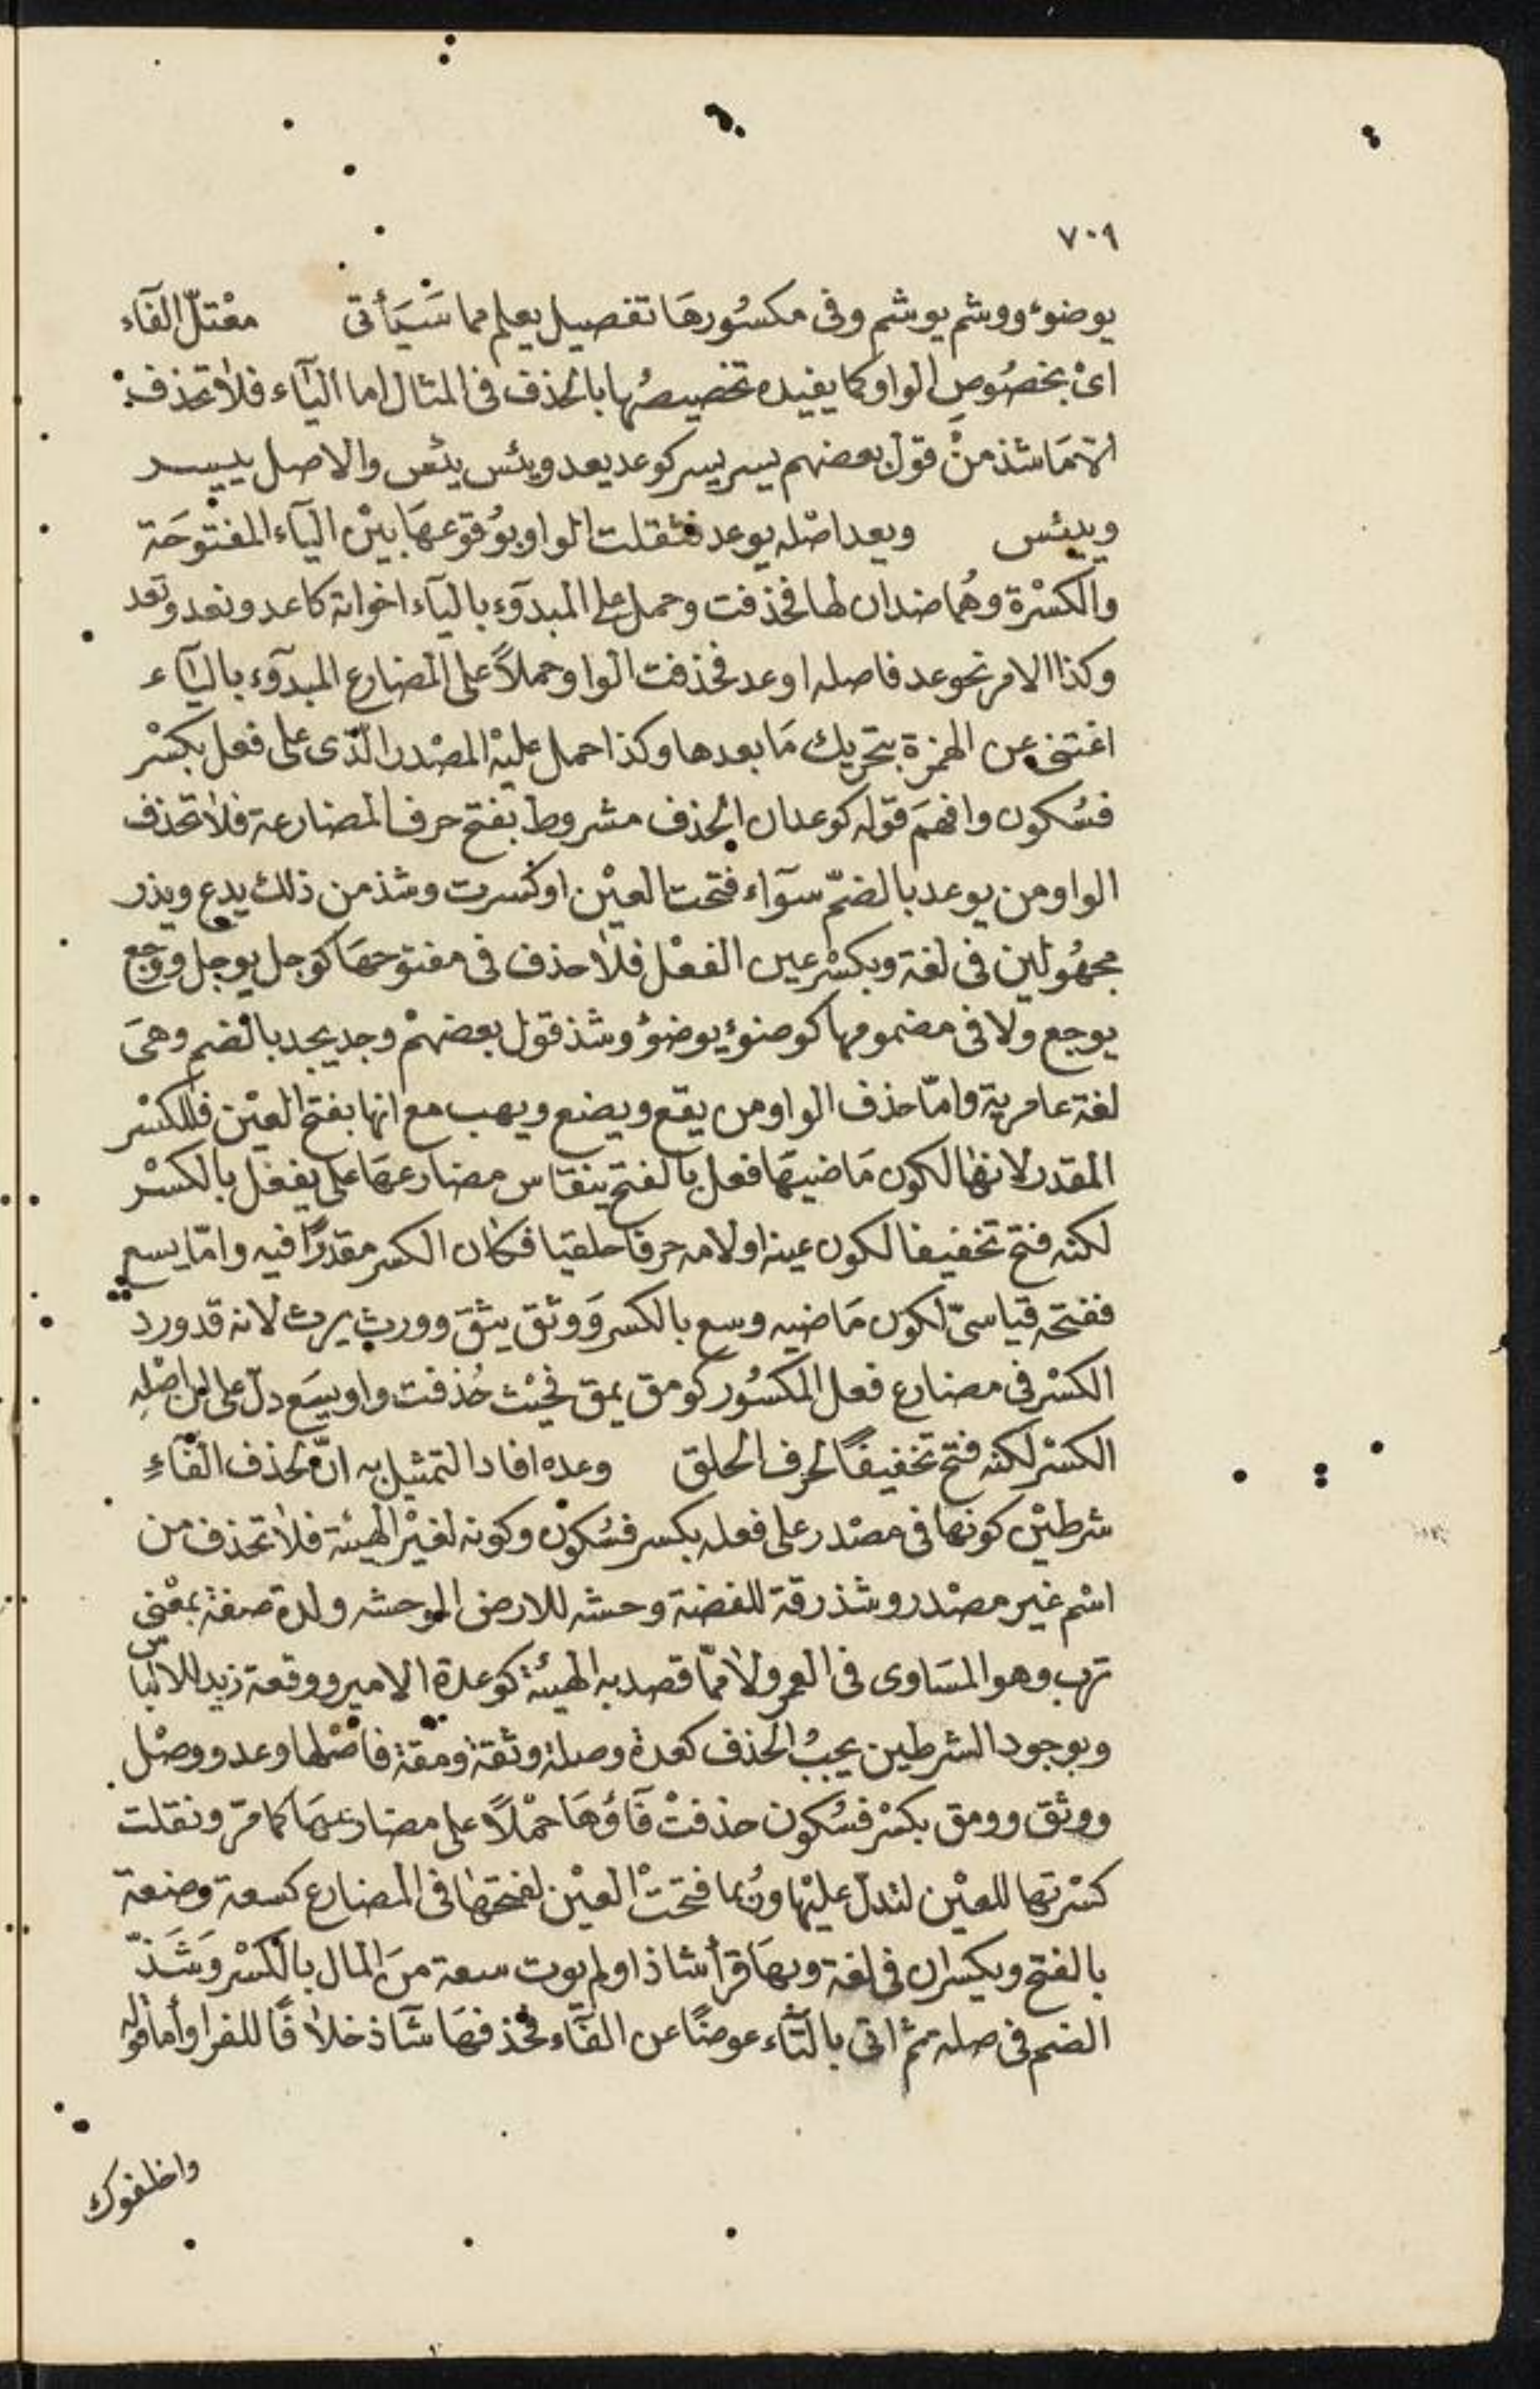 ٧٠٩
يوضوء ووشم يوشم وفى مكسُورهَا تفصيل يعلم مما سَيَأتى معْتلّ الفآء
اىْ بخصُوصِ الواو كما يفيده تخصيصُها بالحذف فى المثال اما اليآء فلا تحذف
الا مَا شذ منْ قول بعضهم يسر يسر كوعد يعد ويئس يئس والاصل ييسر
وييئس ويعد اصْله يوعد فثقلت الواو بوُقوعهَا بيْن اليآء المفتوحَة
والكسْرة وهُما ضدان لها فحذفت وحمل على المبدوّء باليآء اخواته كاعد ونعد وتعد
وكذا الامر نحو عد فاصله اوعد فحذفت الواو حملاً على المضارع المبدوّء باليآء
اغتنى عن الهمزة بتحريك مَا بعدها وكذا حمل عليْه المصْدر الّذى على فعل بكسْر
فسُكون وافهَم قوله كوعد ان الحذف مشروط بفتح حرف المضارعة فلا تحذف
الواو من يوعد بالضمّ سوآء فتحت العيْن او كسرت وشذ من ذلك يدع ويذر
مجهُولين فى لغة وبكسْر عين الفعْل فلا حذف فى مفتوحهَا كوجل يوجل ووجع
يوجع ولا فى مضمومها كوضوء يوضوُ وشذ قول بعضهمْ وجد يجد بالضم وهىَ
لغة عامرية وامّا حذف الواو من يقع ويضع ويهب مع انها بفتح العيْن فللكسْر
المقدر لانها لكون مَاضيهَا فعل بالفتح ينقاس مضارعهَا على يفعل بالكسْر
لكنه فتح تخفيفا لكون عينه او لامه حرفا حلقيا فكان الكسر مقدرًا فيه وامّا يسع
ففتحه قياسىّ لكون مَاضيه وسع بالكسر وَوثق يثقَ وورث يرث لانه قد ورد
الكسْر فى مضارع فعل المكسُور كومق يمق فحيْث حُذفت واو يسَع دلّ على ان اصْله
الكسْر لكنه فتح تخفيفًا لحرف الحلق وعده افاد التمثيل به انّ لحذف الفآءِ
شرطيْن كونها فى مصْدر على فعله بكسر فسُكون وكونه لغيْر الهيئة فلا تحذف من
اسْم غير مصْدر وشذ رقة للفضة وحشه للارض الموحشه ولدة صفة بمعْنى
ترب وهو المسَاوى فى العمر ولا ممّا قصد به الهيئة كوعدة الامير ووقعة زيد للالباس
وبوجود الشرطين يجبُ الحذف كعدة وصلة وثقة ومقة فاصْلها وعد ووصْل
ووثق وومق بكسْر فسُكون حذفتْ فَاؤهَا حمْلاً على مضارعهَا كما مَرّ ونقلت
كسْرتها للعيْن لتدل عليْها ورُبما فتحتْ العيْن لفتحتها فى المضارع كسعة وضعة
بالفتح ويكسران فى لغة وبهَا قرأ شاذا ولم يوت سعة منَ المال بالكسْر وَشَذّ
الضم فى صله ثم اتى بالتآء عوضًا عن الفآء فحذفهَا شآذ خلافًا للفرا وأما قوله
واخلفوك